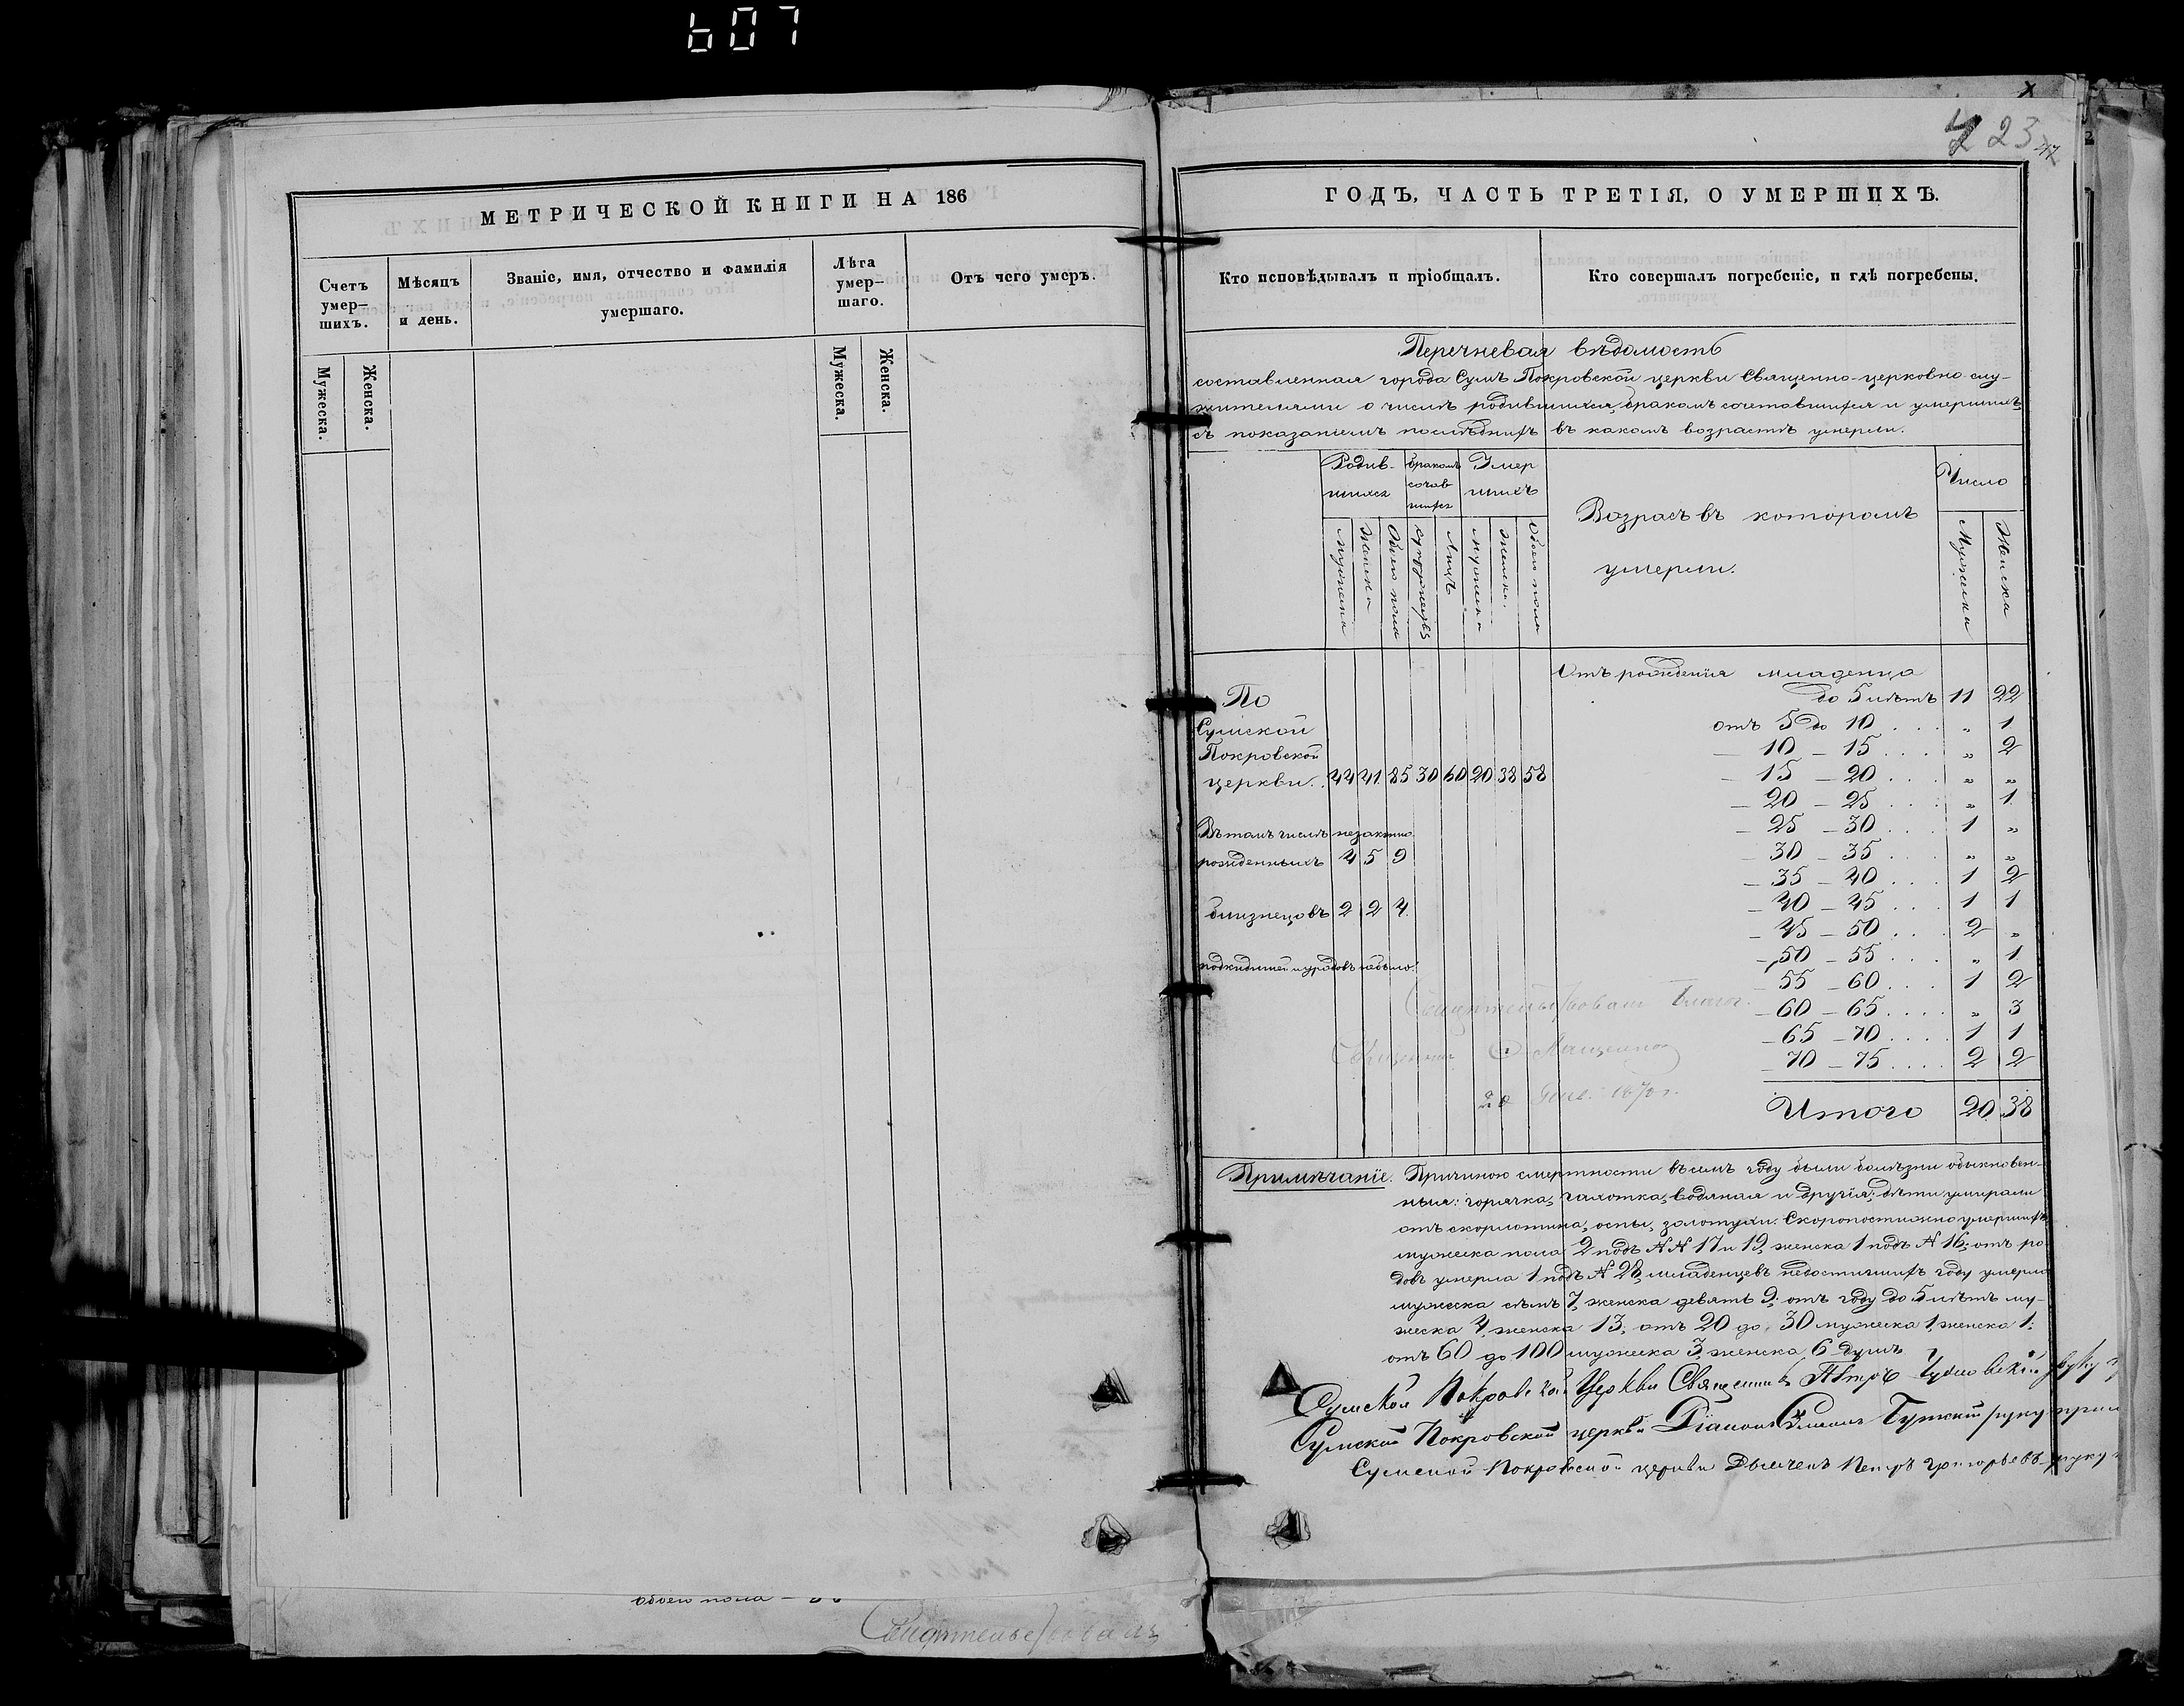 607
МЕТРИЧЕСКОЙ КНИГИ НА 186
Счетъ умер-шихъ.
Мѣсяцъ и день.
Званіе, имя, отчество и фамилія умершаго.
Лѣта умер-шаго.
Отъ чего умеръ.
Мужеска.
Женска.
Мужеска.
Женска.
обоего пола —
Свидѣтельствовалъ
223
47
ГОДЪ, ЧАСТЬ ТРЕТІЯ, О УМЕРШИХЪ.
Кто исповѣдывалъ и пріобщалъ.
Кто совершалъ погребеніе, и гдѣ погребены.
Перечневая вѣдомость
составленная города Сумъ Покровской церкви Священно-церковно-слу-
жителями о числѣ родившихся, бракомъ сочетавшихся и умершихъ,
съ показаніемъ послѣднихъ въ какомъ возрастѣ умерли.
Родив-шихся
бракомъ сочав шихся
Умер шихъ
Возрасъ въ которомъ умерли.
Число
Мужеска
Женска
Обоего пола
супружествъ
Лицъ
Мужеска
Женска.
Обоего пола
Мужеска
Женска
Отъ рожденія младенца
По до 5 лѣтъ 11 22
Сумской отъ 5 до 10 . . . „ 1
Покровской — 10 — 15 . . . „ 2
церкви. 44 41 85 30 60 20 38 58 — 15 — 20 . . . „ „
— 20 — 25 . . . „ 1
Въ томъ числѣ незаконно — 25 — 30 . . . 1 „
рожденныхъ 4 5 9 30 — 35 . . . „ „
— 35 — 40 . . . 1 2
близнецовъ 2 2 4. — 40 — 45 . . . 1 1
— 45 — 50 . . . 2 „
подкидышей и уродовъ небыло. — 50 — 55 . . . „ 1
55 — 60 . . . 1 2
Свидѣтельствовалъ Благоч. — 60 — 65 . . . . „ 3
Священникъ — 65 — 70 . . . . 1 1
— 70 — 75 . . . . 2 2
20 1870 г.
Итого 20 38
Примѣчаніе. Причиною смертности въ семъ году были болѣзни обыкновен-
ныя: горячка, чахотка, водяная и другія; дѣти умирали
отъ скорлотина, оспы, золотухи. Скоропостижно умершихъ
мужеска пола 2 подъ №№ 17 и 19, женска 1 подъ № 16; отъ ро-
довъ умерла 1 подъ № 28, младенцевъ недостигшихъ году умерло
мужеска семь 7, женска девять 9; отъ году до 5 лѣтъ му-
жеска 4, женска 13; отъ 20 до 30 мужеска 1, женска 1;
отъ 60 до 100 мужеска 3, женска 6 душъ.
Сумской Покровской Церкви Священникъ Петръ руку
Сумской Покровской церкви Діаконъ руку прил
Сумской Покровской церкви Дьячекъ Петръ Григорьевъ руку